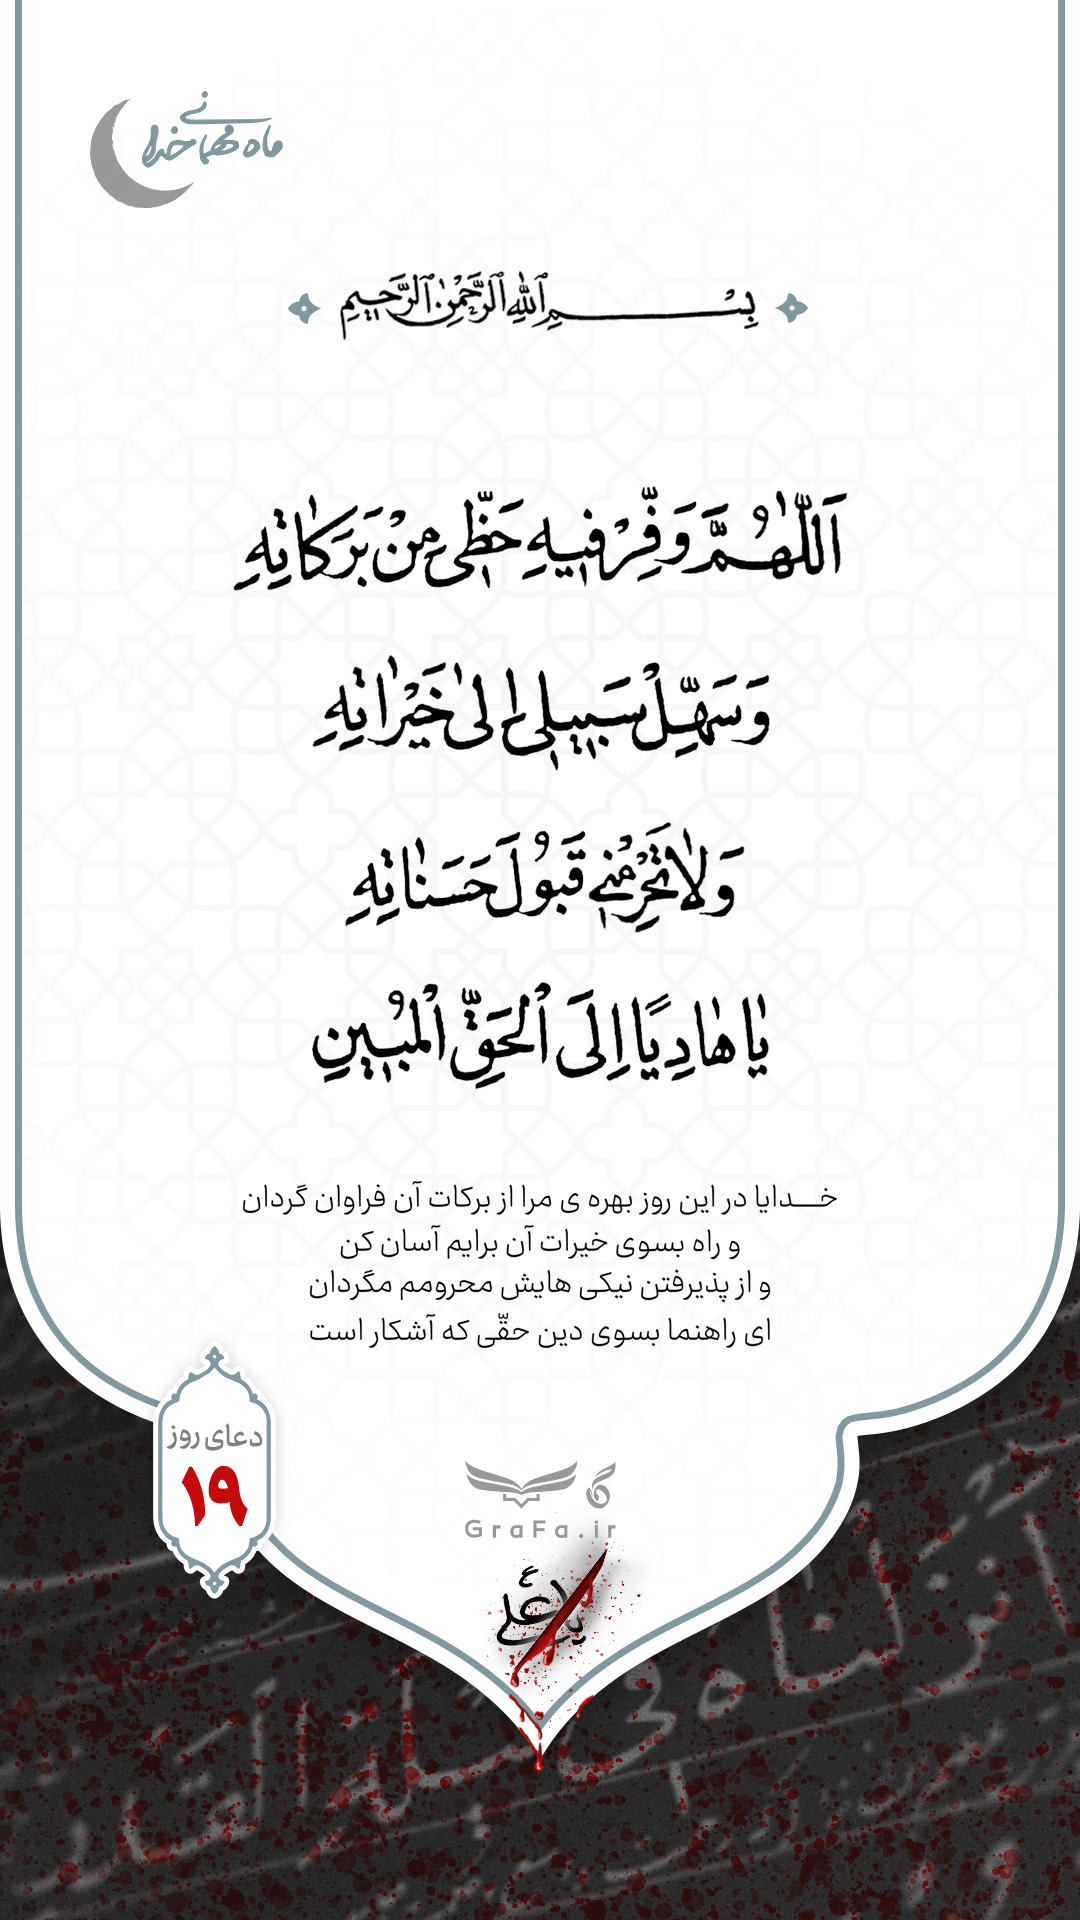 ماه مهمانی خدا
بِسْمِ ٱللَّهِ ٱلرَّحْمٰنِ ٱلرَّحِیمِ
اَللّٰهُمَّ وَفِّرْ فیهِ حَظّی مِنْ بَرَکٰاتِهِ
وَ سَهِّلْ سَبیلی اِلیٰ خَیْرٰاتِهِ
وَ لٰا تَحْرِمْنی قَبُولَ حَسَنٰاتِهِ
یٰا هٰادِیًا اِلَی ٱلْحَقِّ ٱلْمُبینِ
خـــدایا در این روز بهره ی مرا از برکات آن فراوان گردان
و راه بسوی خیرات آن برایم آسان کن
و از پذیرفتن نیکی هایش محرومم مگردان
ای راهنما بسوی دین حقّی که آشکار است
دعای روز
۱۹
GraFa.ir
یا علی
انا انزلناه فی
لیلة القدر